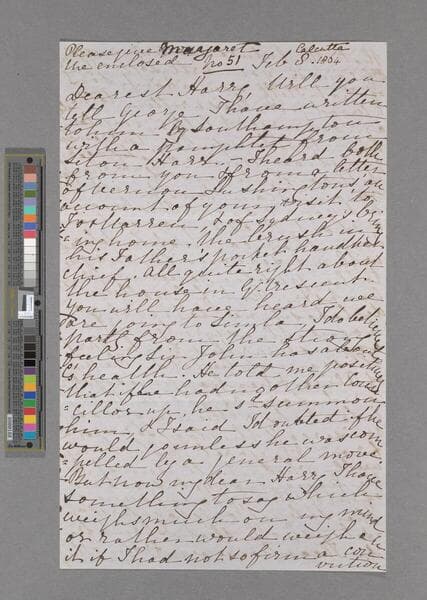 Please give Margaret Calcutta
the enclosed No 51 Feb 8. 1864
Dearest Harry Will you
tell George I have written
to him by Southampton
with a pamphlet from
Harry I heard both
from you & from a letter
of Vernon Lushingtons on
account of your visit to
& of Sydney's
ing home. the in
his Father's pocket handker
chief. All quite right about
the house in G. Crescent.
You will have heard we
are going to Simla. I do believe
partly from the strong
feeling Sir John has about
C's health. He told me positively
that if he had another Coun
cillor up, he sd summon
him & I said I doubted if he
would go unless he was com
pelled by a general move.
But now my dear Harry I have
something to say which
weighs much on my mind
or rather would weigh on
it if I had not so firm a con
viction